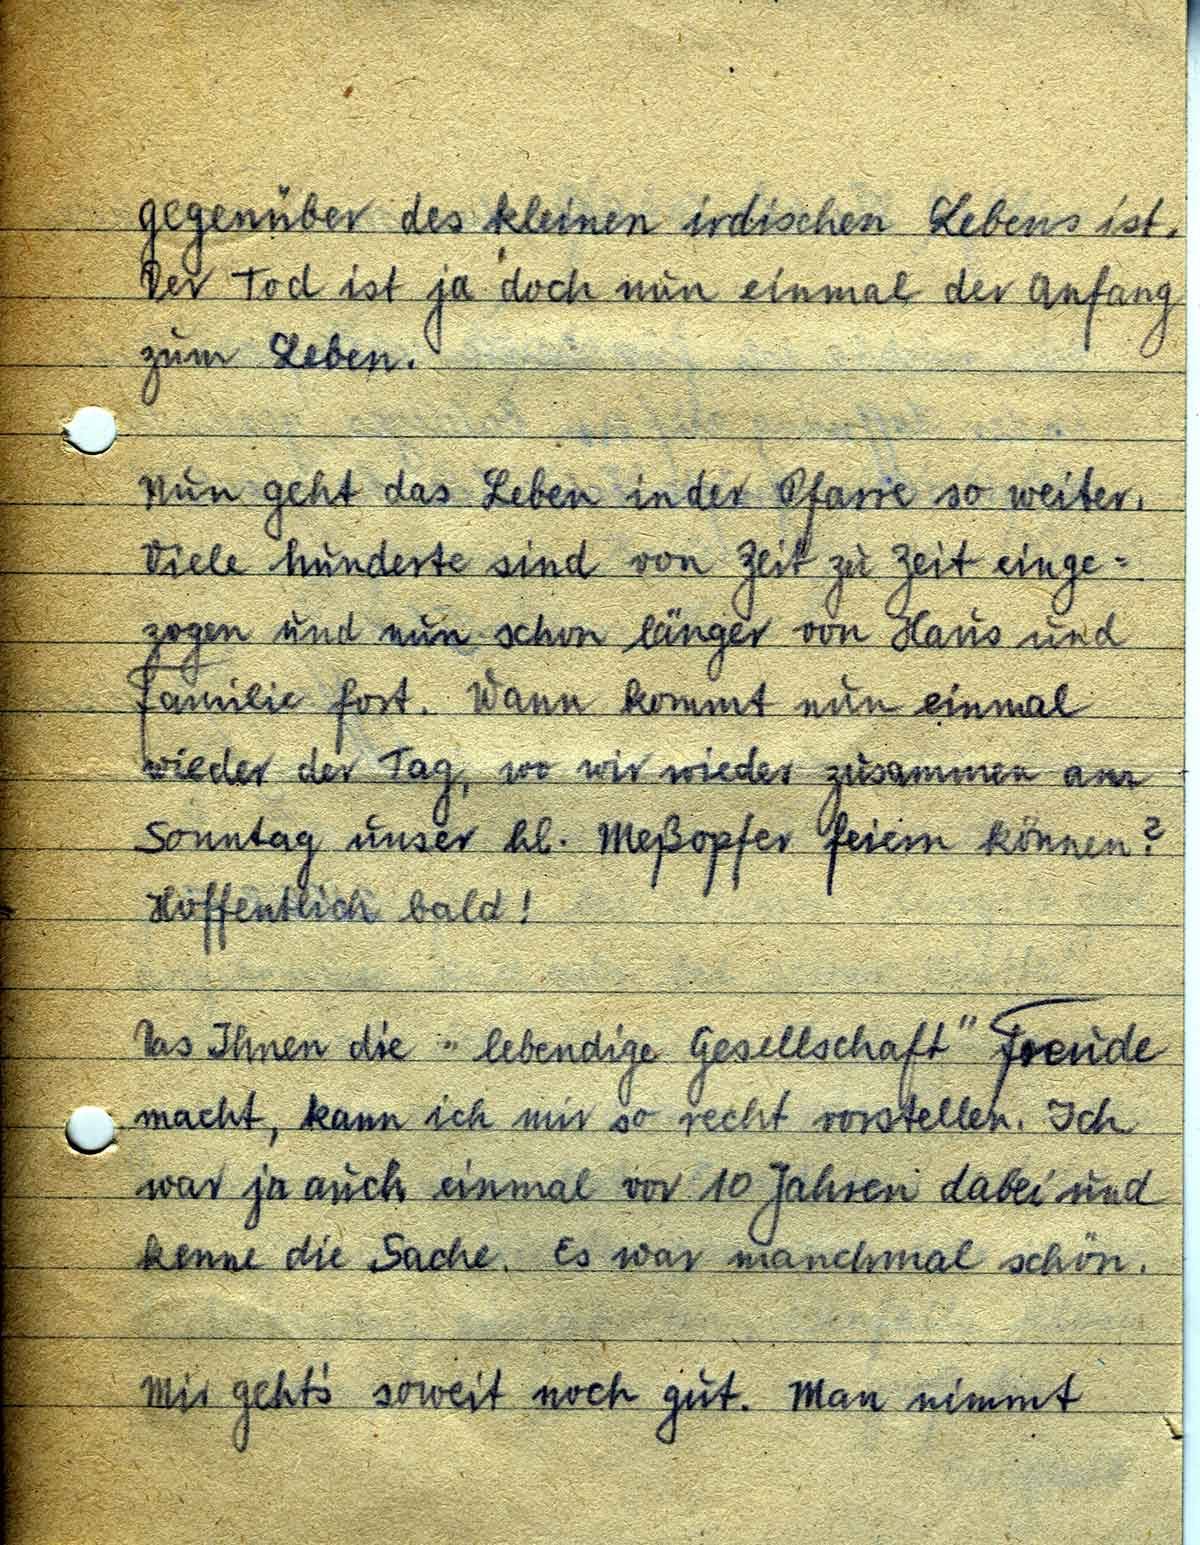 gegenüber des kleinen irdischen Lebens ist.
Der Tod ist ja doch nun einmal der Anfang
zum Leben.
Nun geht das Leben in der Pfarre so weiter.
Viele hunderte sind von Zeit zu Zeit einge=
zogen und nun schon länger von Haus und
Familie fort. Wann kommt nun einmal
wieder der Tag, wo wir wieder zusammen am
Sonntag unser hl. Meßopfer feiern können?
Hoffentlich bald!
Das Ihnen die „lebendige Gesellschaft" Freude
macht, kann ich mir so recht vorstellen. Ich
war ja auch einmal vor 10 Jahren dabei und
kenne die Sache. Es war manchmal schön.
Mir geht's soweit noch gut. Man nimmt